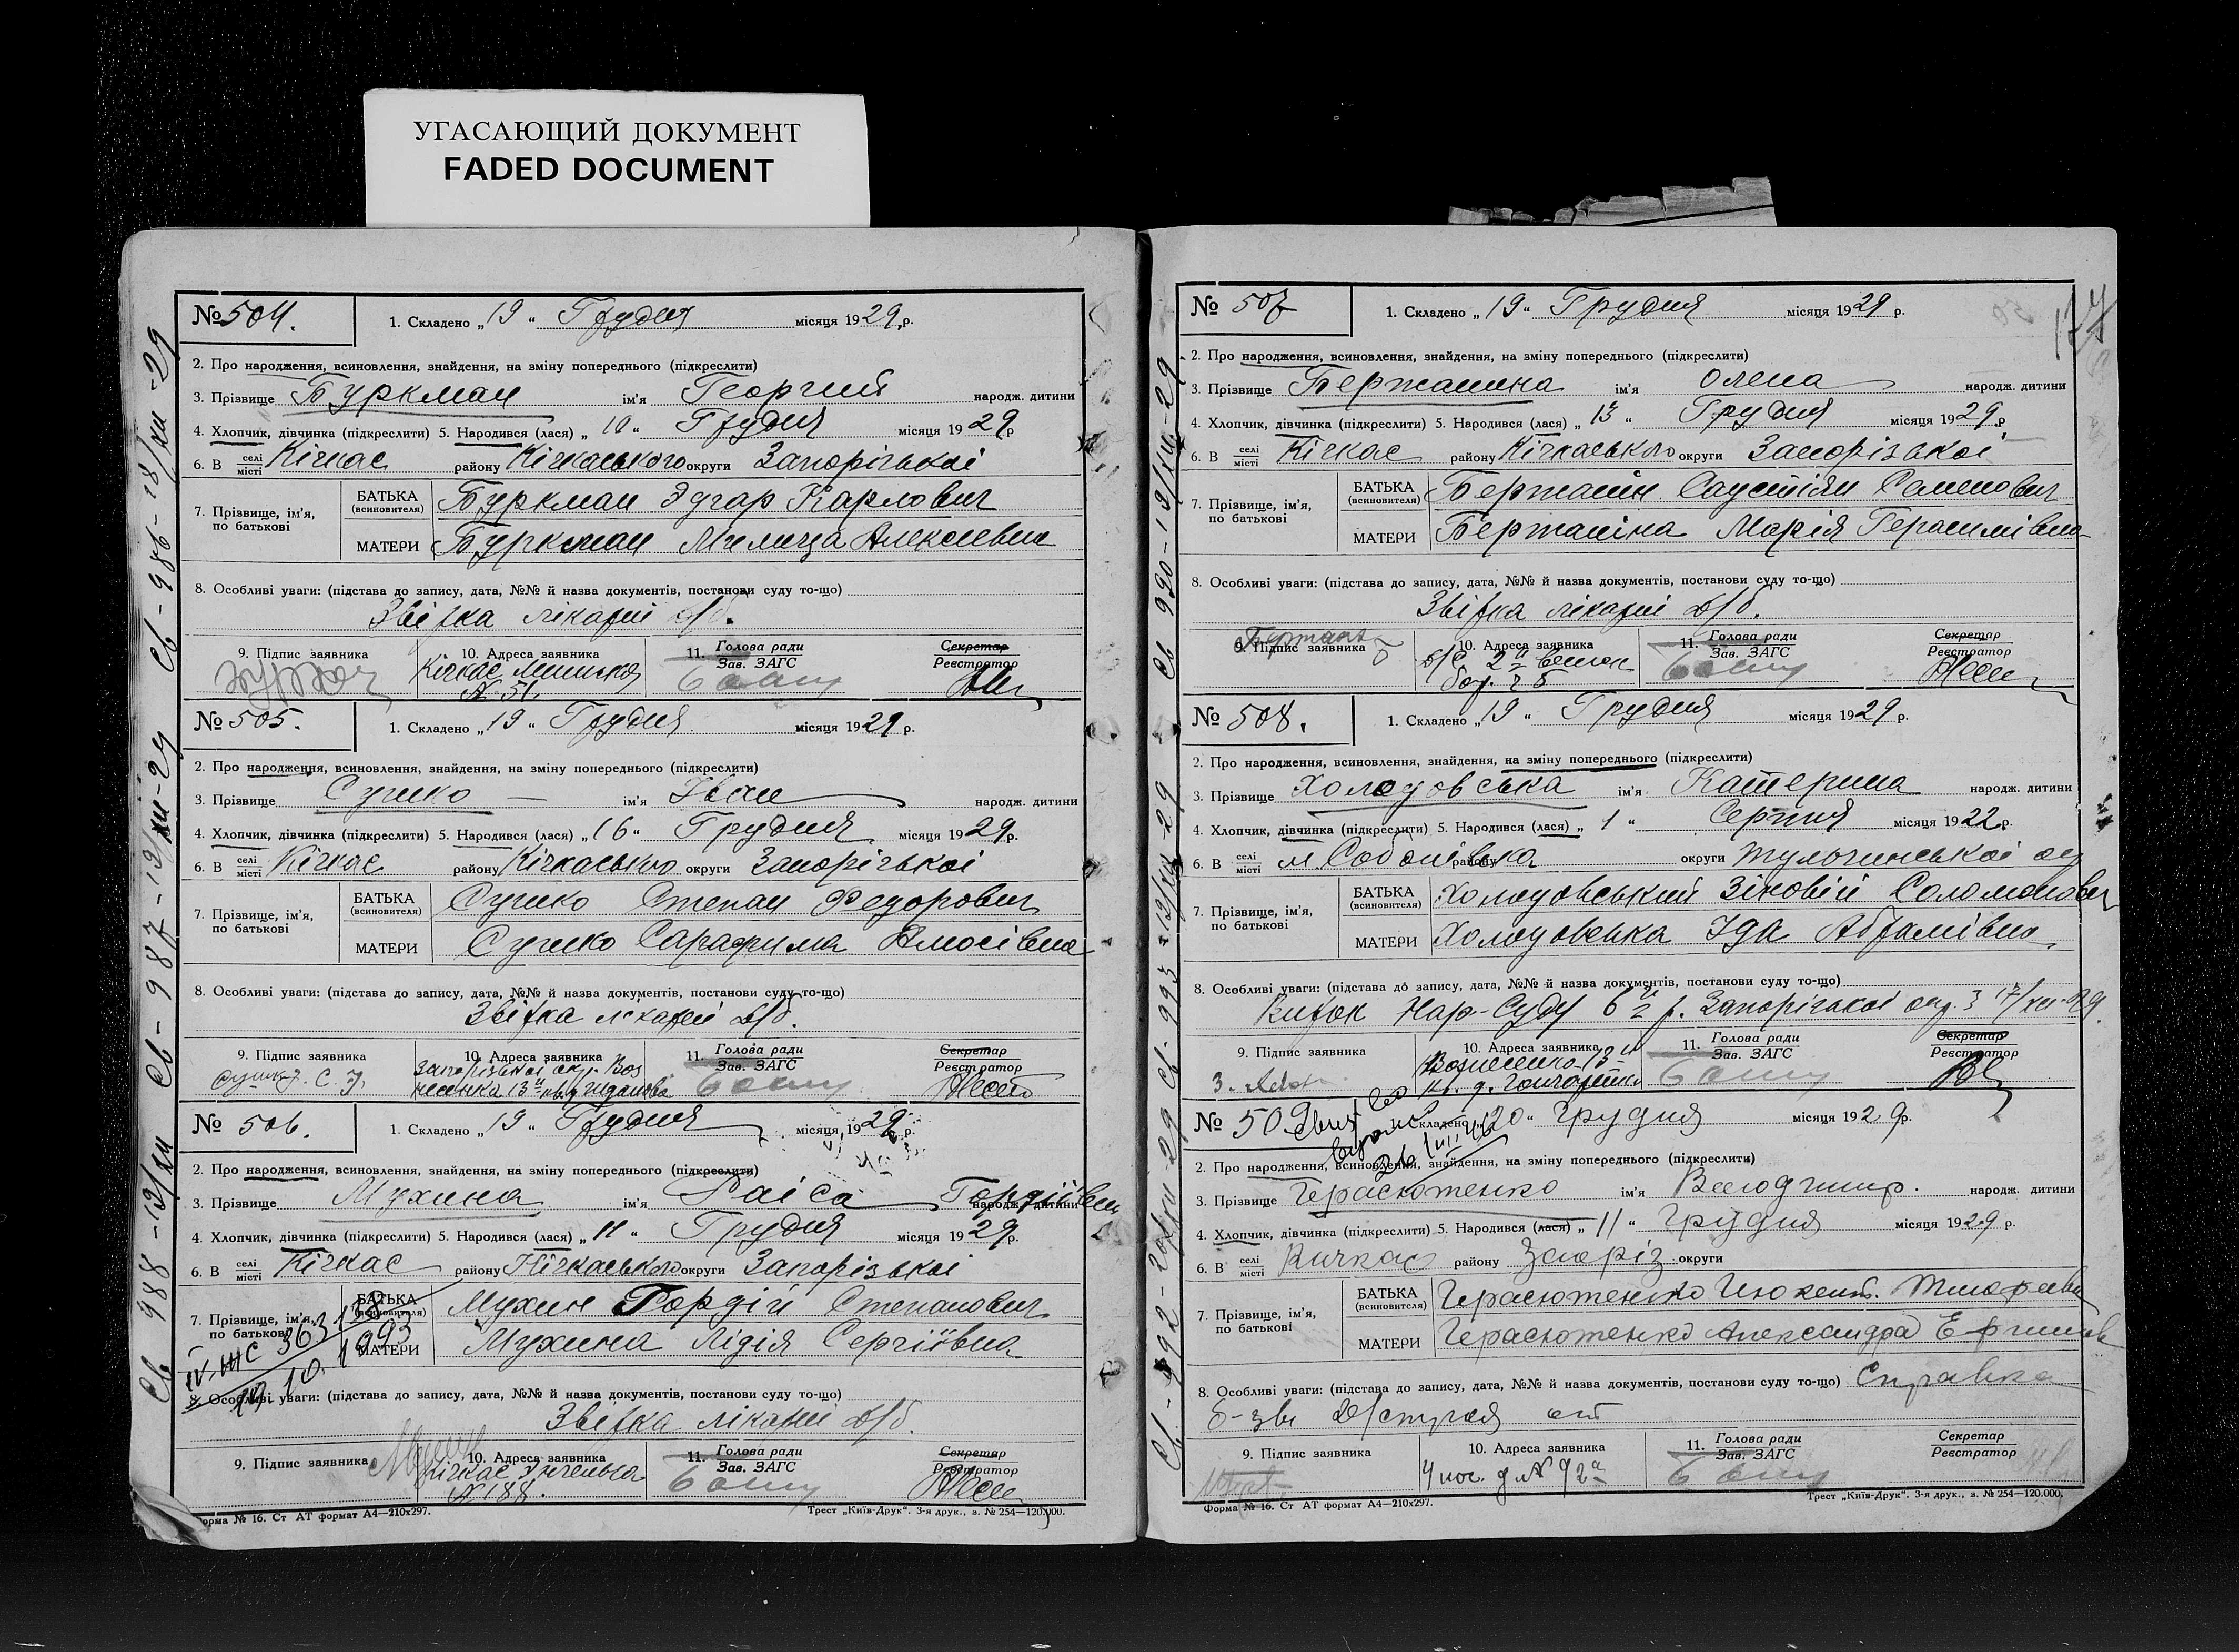 УГАСАЮЩИЙ ДОКУМЕНТ
FADED DOCUMENT
№ 504. 1. Складено „ 19 “ Грудня місяця 1929 р.
2. Про народження, всиновлення, знайдення, на зміну попереднього (підкреслити)
3. Прізвище Буркман ім'я Георгий народж. дитини
4. Хлопчик, дівчинка (підкреслити) 5. Народився (лася) „ 10 “ Грудня місяця 1929 р
6. В селі місті Кічкас району Кічкаського округи Запорізької
7. Прізвище, ім'я, по батькові
БАТЬКА (всиновителя) Буркман Эдгар Карлович
МАТЕРИ Буркман Милица Алексеевна
8. Особливі уваги: (підстава до запису, дата, №№ й назва документів, постанови суду то-що)
Звітка лікарні Д/б.
9. Підпис заявника 10. Адреса заявника 11. Голова ради Зав. ЗАГС Секретар Реєстратор
Кічкас
№ 51.
№ 505. 1. Складено „ 19 “ Грудня місяця 1929 р.
2. Про народження, всиновлення, знайдення, на зміну попереднього (підкреслити)
3. Прізвище Сушко ім'я Іван народж. дитини
4. Хлопчик, дівчинка (підкреслити) 5. Народився (лася) „ 16 “ Грудня місяця 1929 р.
6. В селі місті Кічкас району Кічкаського округи Запорізької
7. Прізвище, ім'я, по батькові
БАТЬКА (всиновителя) Сушко Степан Федорович
МАТЕРИ Сушко Сарафима Амосівна
8. Особливі уваги: (підстава до запису, дата, №№ й назва документів, постанови суду то-що)
Звітка лікарні Д/б.
9. Підпис заявника 10. Адреса заявника 11. Голова ради Зав. ЗАГС Секретар Реєстратор
Запорізької окр. Воз
несенка 13
№ 506. 1. Складено „ 19 “ Грудня місяця 1929 р.
2. Про народження, всиновлення, знайдення, на зміну попереднього (підкреслити)
3. Прізвище Мухина ім'я Раіса Гордіївна народж. дитини
4. Хлопчик, дівчинка (підкреслити) 5. Народився (лася) „ 11 “ Грудня місяця 1929 р.
6. В селі місті Кічкас району Кічкаського округи Запорізької
7. Прізвище, ім'я, по батькові
БАТЬКА (всиновителя) Мухин Гордій Степанович
МАТЕРИ Мухина Лідія Сергіївна
IV-ЖС 363138
10. 1993
8. Особливі уваги: (підстава до запису, дата, №№ й назва документів, постанови суду то-що)
Звітка лікарні Д/б.
9. Підпис заявника 10. Адреса заявника 11. Голова ради Зав. ЗАГС Секретар Реєстратор
Кічкас
№ 188.
Форма № 16. Ст АТ формат А4—210х297. Трест „Київ-Друк“. 3-я друк., з. № 254—120.000.
Св 988-19/хіі Св-987-19/хіі-29 Св-986-18/хіі-29
№ 507 1. Складено „ 19 “ Грудня місяця 1929 р.
2. Про народження, всиновлення, знайдення, на зміну попереднього (підкреслити)
3. Прізвище Бержанина ім'я Олена народж. дитини
4. Хлопчик, дівчинка (підкреслити) 5. Народився (лася) „ 13 “ Грудня місяця 1929 р
6. В селі місті Кічкас району Кічкаського округи Запорізької
7. Прізвище, ім'я, по батькові
БАТЬКА (всиновителя) Бержанін Саустіян Семенович
МАТЕРИ Бержаніна Марія Герасимівна
8. Особливі уваги: (підстава до запису, дата, №№ й назва документів, постанови суду то-що)
Звітка лікарні Д/б.
9. Підпис заявника 10. Адреса заявника 11. Голова ради Зав. ЗАГС Секретар Реєстратор
№ 508. 1. Складено „ 19 “ Грудня місяця 1929 р.
2. Про народження, всиновлення, знайдення, на зміну попереднього (підкреслити)
3. Прізвище Холодовська ім'я Катерина народж. дитини
4. Хлопчик, дівчинка (підкреслити) 5. Народився (лася) „ 1 “ Серпня місяця 1922 р.
6. В селі місті м. Соболівка району округи Тульчинської ок
7. Прізвище, ім'я, по батькові
БАТЬКА (всиновителя) Холодовський Зіновій Соломонович
МАТЕРИ Холодовська Іда Абрамівна
8. Особливі уваги: (підстава до запису, дата, №№ й назва документів, постанови суду то-що)
Виток Нар-Суду 6 р. Запорізької окр. з 17/хіі-29.
9. Підпис заявника 10. Адреса заявника 11. Голова ради Зав. ЗАГС Секретар Реєстратор
№ 509 1. Складено „ 20 “ Грудня місяця 1929 р.
2. Про народження, всиновлення, знайдення, на зміну попереднього (підкреслити)
3. Прізвище Герасютенко ім'я Володимир. народж. дитини
4. Хлопчик, дівчинка (підкреслити) 5. Народився (лася) „ 11 “ Грудня місяця 1929 р.
6. В селі місті Кичкас району Запоріз округи
7. Прізвище, ім'я, по батькові
БАТЬКА (всиновителя) Герасютенко
МАТЕРИ Герасютенко Александра
8. Особливі уваги: (підстава до запису, дата, №№ й назва документів, постанови суду то-що) Справка
9. Підпис заявника 10. Адреса заявника 11. Голова ради Зав. ЗАГС Секретар Реєстратор
4 пос. д № 92а
Форма № 16. Ст АТ формат А4—210х297. Трест „Київ-Друк“. 3-я друк., з. № 254—120.000.